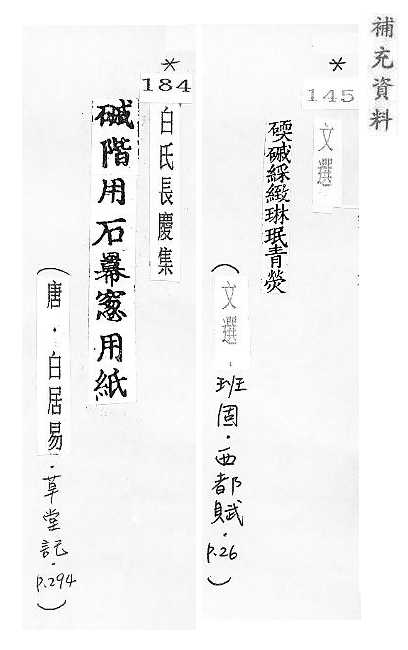 補充資料
*
145
文選
碝磩綵緻琳珉青熒
（文選．班固．西都賦．p.26）
*
184
白氏長慶集
磩階用石羃窓用紙
（唐．白居易．草堂記．p.294）